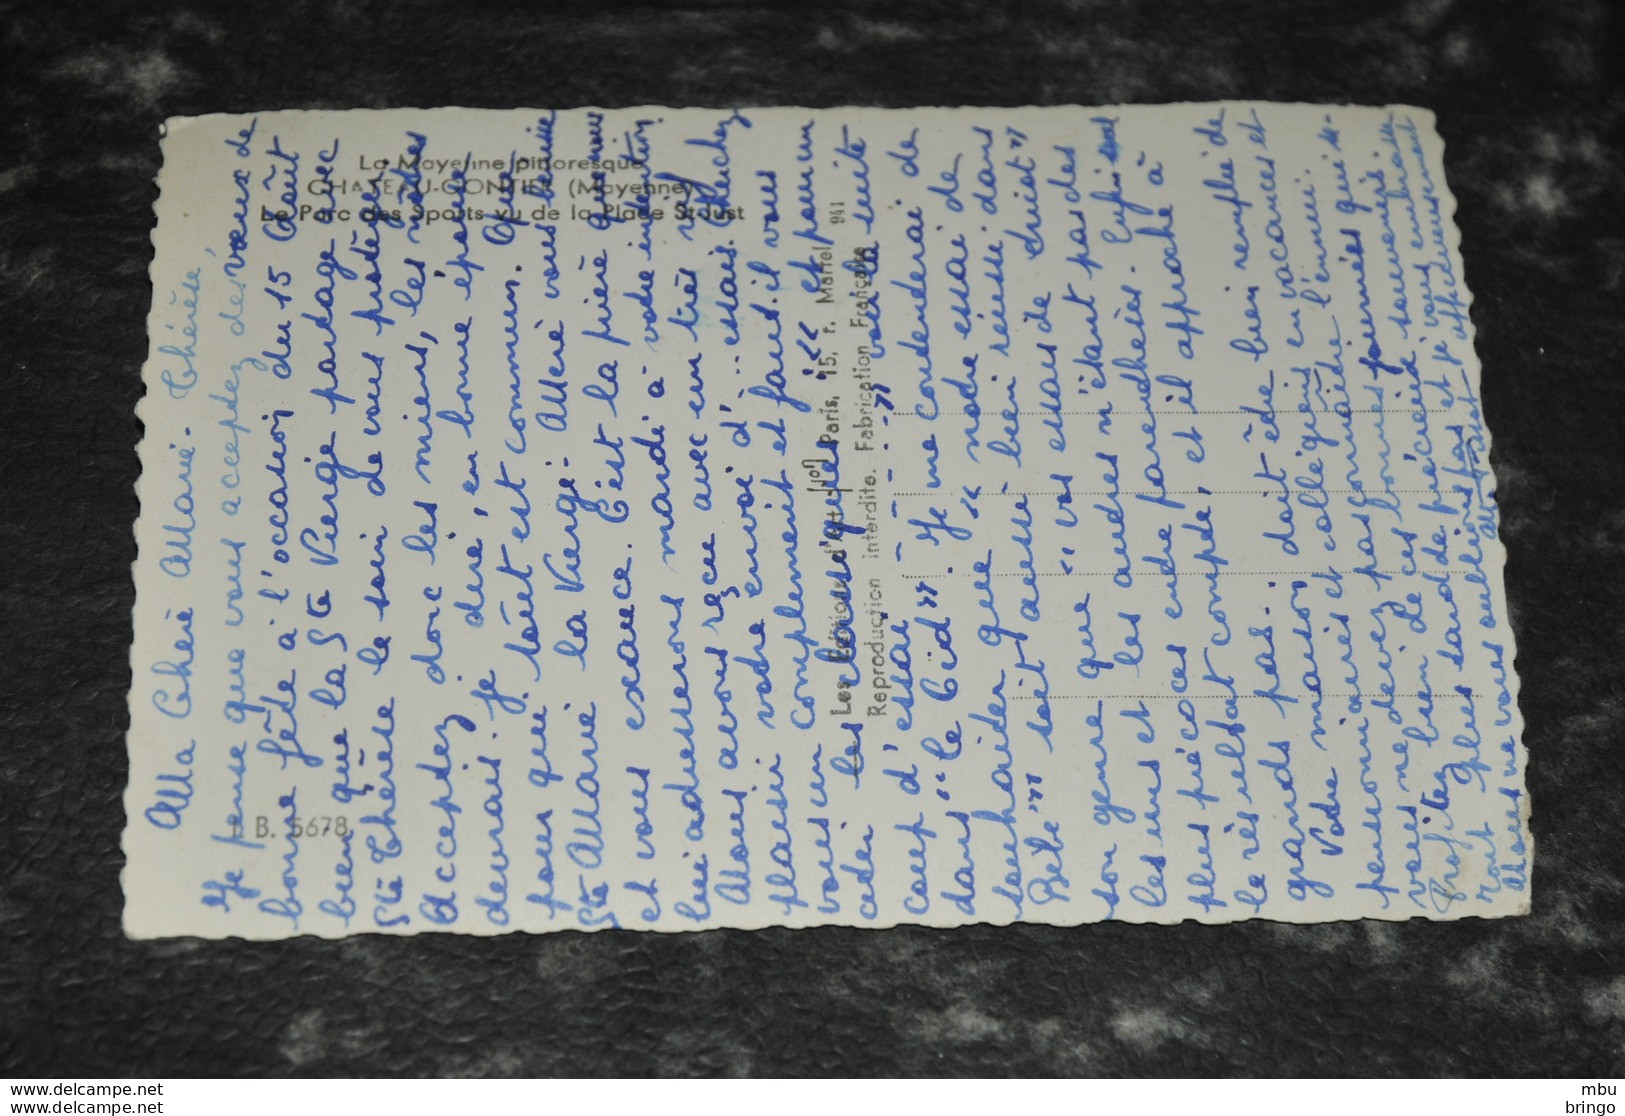 La Mayenne pittoresque
CHATEAU-GONTIER (Mayenne)
Le Parc des Sports vu de la Place St-Just
B. 5678
Les Editions d'Art Paris, 15, r. Martel 941
Reproduction interdite. Fabrication Française
Ma Chère Marie-Thérèse,
Je pense que vous acceptez des vœux de
bonne fête à l'occasion du 15 Août
bien que la Ste Vierge partage avec
Ste Thérèse le soin de vous protéger.
Acceptez donc les miens, les nôtres
devrais-je dire, en bonne épouse
pour qui tout est commun. Que
Ste Marie la Vierge Mère vous bénisse
et vous exauce. C'est la prière que nous
lui adresserons mardi à votre intention.
Nous avons reçu avec un très vif
plaisir votre envoi d' essais. Cherchez
vous un complément et faut-il vous
céder les "et pour un
coup d'essai" voilà la suite
dans "le Cid". Je me contenterai de
souhaiter que "notre essai de
Bébé" soit aussi bien réussi dans
son genre que "vos essais de Christ"
les uns et les autres n'étant pas des
plus précoces entre parenthèses. Enfin
le résultat compte, et il approche à
grands pas.
Votre maison doit être bien remplie de
pensionnaires et collégiens en vacances et
vous ne devez pas connaître l'ennui.
Profitez bien de ces bonnes journées qui se-
ront plus tard de précieux souvenirs
Nous ne vous oublions pas et je vous embrasse
affectueusement